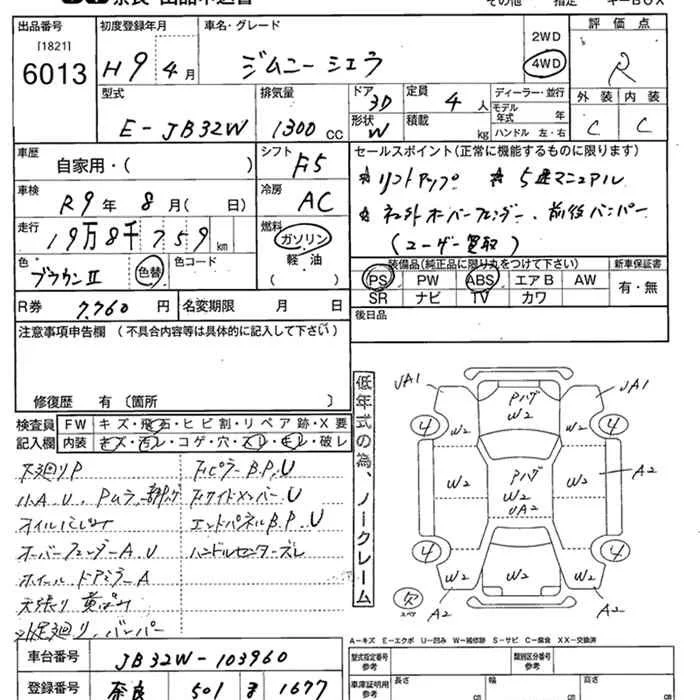 奈良 出品申込書 その他 指定 キーBOX
出品番号 [1821] 6013
初度登録年月 H9年4月
車名・グレード ジムニー シエラ
2WD 4WD
評価点 R
型式 E-JB32W
排気量 1300cc
ドア 3D 形状 W
定員 4人 積載 kg
ディーラー・並行
モデル年式 年
ハンドル 左・右
外装 C 内装 C
車歴 自家用・( )
シフト F5
車検 R9年8月( 日)
冷房 AC
走行 19万8千759km
燃料 ガソリン 軽・油 ( )
色 ブラウンII 色替 色コード
セールスポイント(正常に機能するものに限ります)
☆リフトアップ ☆5速マニュアル
☆社外オーバーフェンダー、前後バンパー
(ユーザー買取)
装備品(純正品に限り丸をつけて下さい) 新車保証書
PS PW ABS エアB AW 有・無
SR ナビ TV カワ
R券 7,760円 名変期限 月 日
後日品
注意事項申告欄(不具合内容等は具体的に記入して下さい)
修復歴 有(箇所 )
検査員記入欄
FW キズ・飛石・ヒビ割・リペア跡・X要
内装 キズ・汚レ・コゲ・穴・スレ・モレ・破レ
下廻りP
小A.U.
オイルにじみ
オーバーフェンダーA.U
ホイール ドアミラーA
天張り 黄ばみ
足廻り.バンパー
B.P.U
.U
エンドパネルB.P.U
ハンドルセンターズレ
低年式の為、ノークレーム
UA1 UA1
Pハゲ W2
4 W2 W2 4
W2 Pハゲ W2 UA2 W2 A2
4 4
W2 W2 W2
欠 スペア A2 A2
A-キズ E-エクボ U-凹み W-補修跡 S-サビ C-腐食 XX-交換済
車台番号 JB32W-103960
型式指定番号 参考 類別区分番号 参考
登録番号 奈良 501 1677
車庫証明用 参考 長さ cm 幅 cm 高さ cm